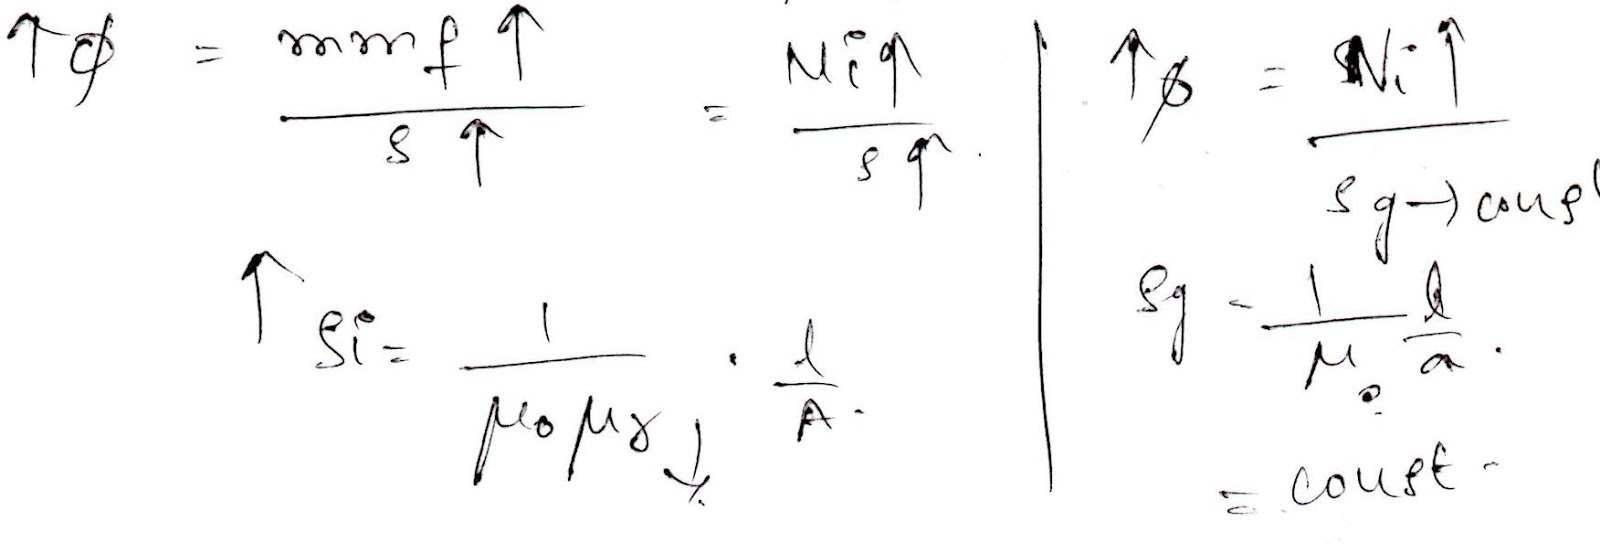 ↑φ = mmf↑ / S↑ = Ni↑ / S↑.
↑Si = 1 / μ0 μr↓ · l / A.
↑φ = Ni↑ / Sg → const
Sg = 1 / μ0 l / a.
= const.